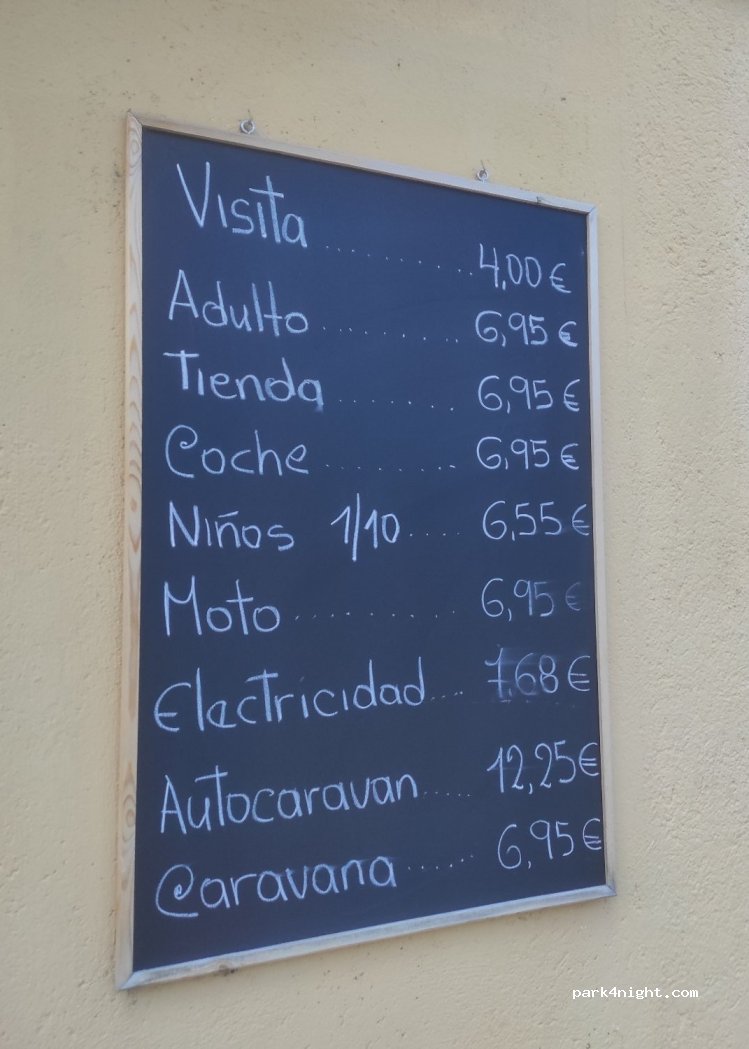 Visita ........... 4,00 €
Adulto .......... 6,95 €
Tienda ........ 6,95 €
Coche .......... 6,95 €
Niños 1/10 .... 6,55 €
Moto .......... 6,95 €
Electricidad .... 7,68 €
Autocaravan ..... 12,25 €
Caravana ...... 6,95 €
park4night.com